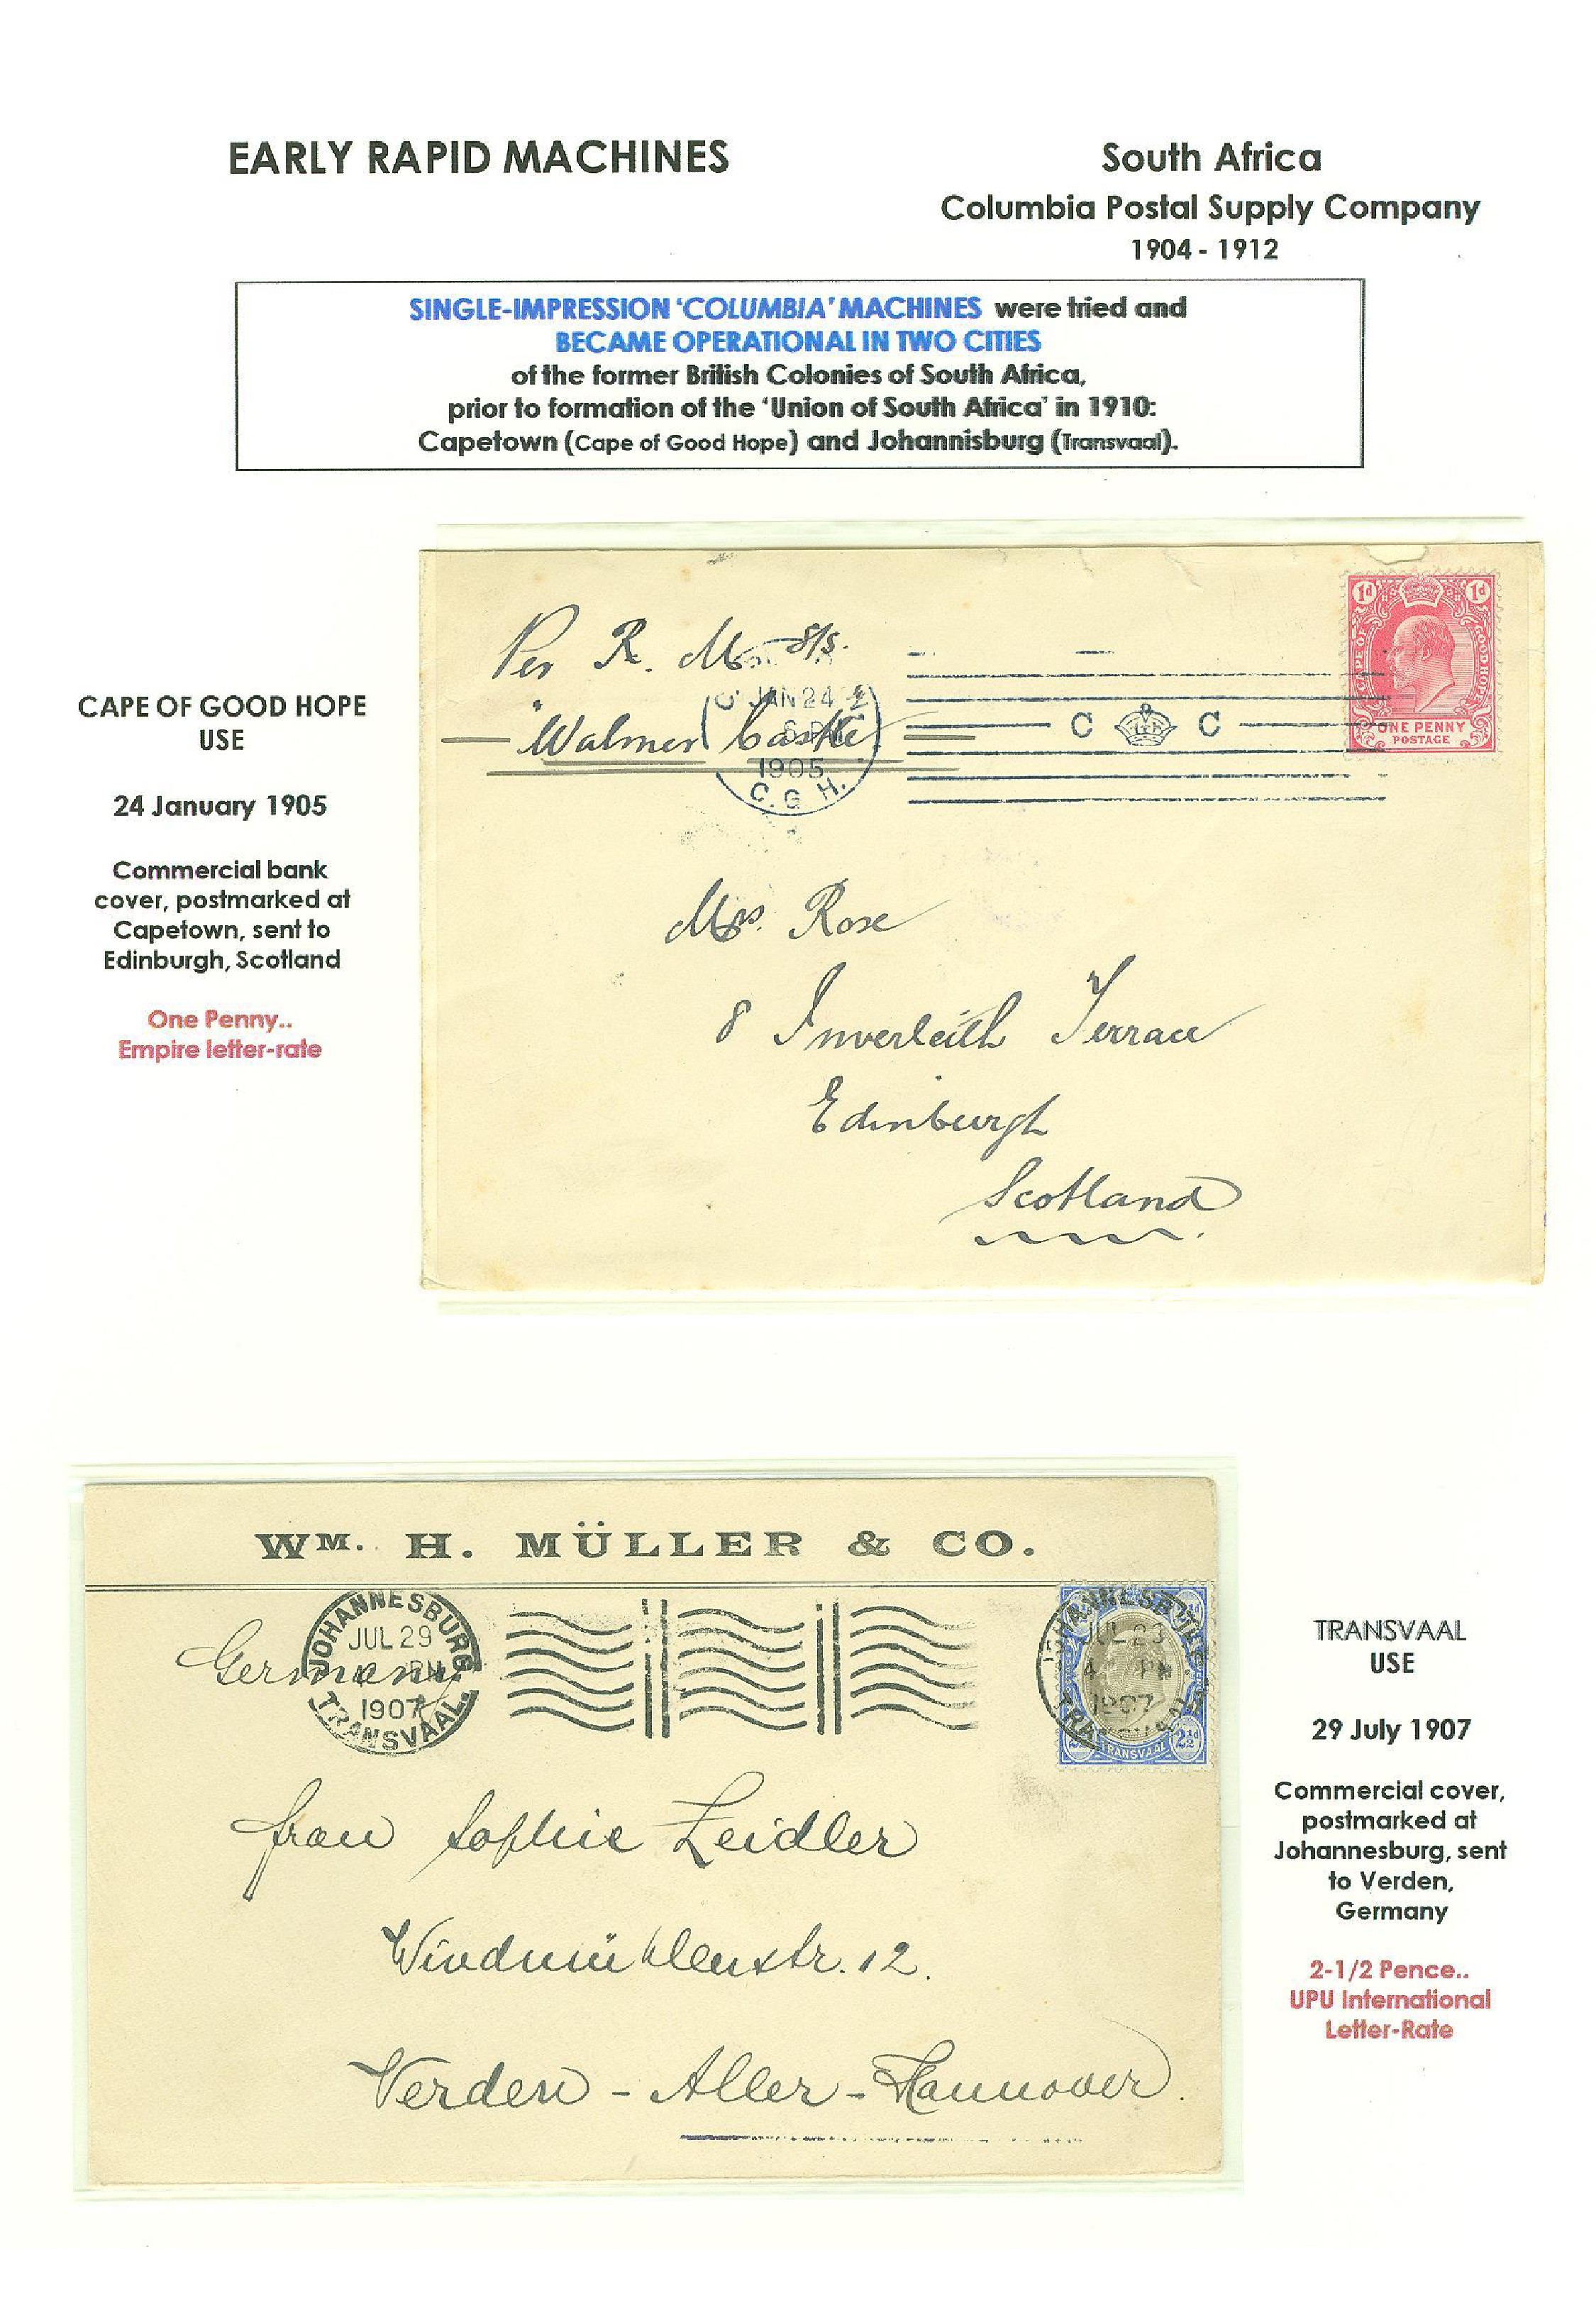 EARLY RAPID MACHINES
South Africa
Columbia Postal Supply Company
1904 - 1912
SINGLE-IMPRESSION ‘COLUMBIA’ MACHINES were tried and
BECAME OPERATIONAL IN TWO CITIES
of the former British Colonies of South Africa,
prior to formation of the ‘Union of South Africa’ in 1910:
Capetown (Cape of Good Hope) and Johannisburg (Transvaal).
CAPE OF GOOD HOPE
USE
24 January 1905
Commercial bank
cover, postmarked at
Capetown, sent to
Edinburgh, Scotland
One Penny..
Empire letter-rate
Per R. M. S/S.
"Walmer Castle
JAN 24
1905
C. G. H.
C C
1d 1d
CAPE OF GOOD HOPE
ONE PENNY
POSTAGE
Mrs. Rose
8 Inverleith Terrace
Edinburgh
Scotland
WM. H. MÜLLER & CO.
JOHANNESBURG
JUL 29
PM
1907
TRANSVAAL.
Germany
JOHANNESBURG
JUL 29
4 PM
1907
TRANSVAAL
TRANSVAAL
2½d
Frau Sophie Zeidler
Windmühlenstr. 12.
Verden - Aller - Hannover.
TRANSVAAL
USE
29 July 1907
Commercial cover,
postmarked at
Johannesburg, sent
to Verden,
Germany
2-1/2 Pence..
UPU International
Letter-Rate